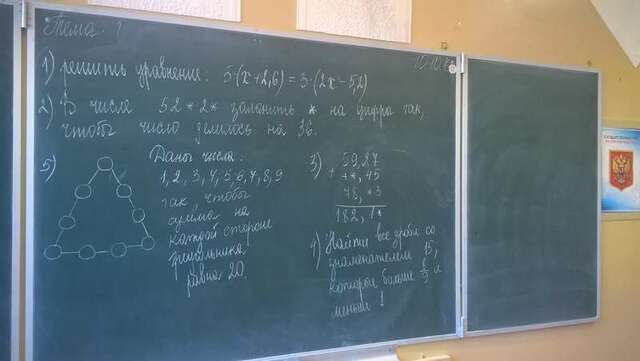 Тема 1
1) решить уравнение: 5·(x+2,6)=3·(2x-52)
2) В числе 52*2* заменить * на цифра так,
чтобы число делилось на 36.
5) Даны числа:
1, 2, 3, 4, 5, 6, 7, 8, 9
так, чтобы
сумма на
каждой стороне
треугольника
равна 20.
3) 59,27
+ **,45
78,*3
182,1*
4) Найти все дроби со
знаменателем 15,
которые больше 8/9 и
меньше 1